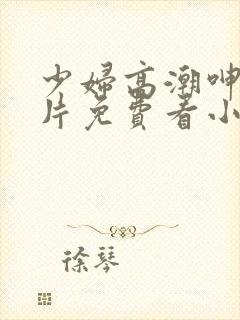 少婦高潮呻
片免費看小
徐琴